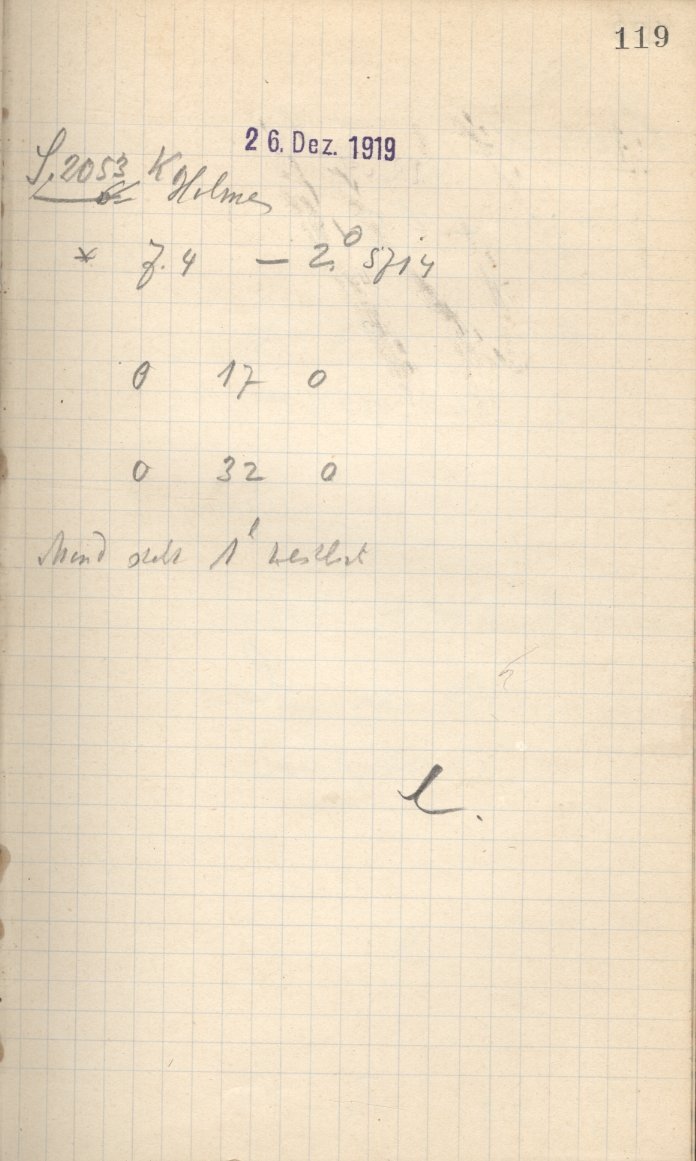 119
26. Dez. 1919
S. 2053 K Holmes
* 7.4 — 2.° 5714
0 17 0
0 32 0
Mond steht 1° westlich
L.